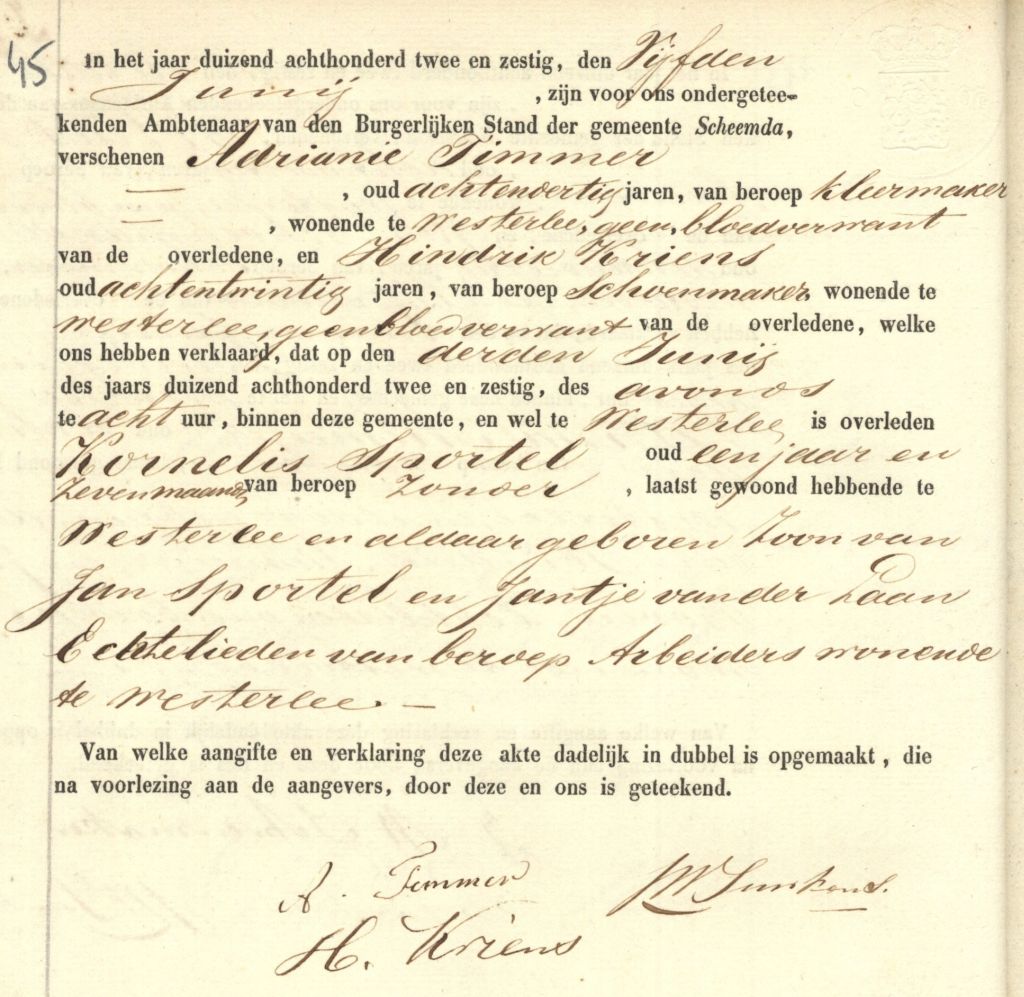 45
In het jaar duizend achthonderd twee en zestig, den Vijfden
Junij , zijn voor ons ondergetee-
kenden Ambtenaar van den Burgerlijken Stand der gemeente Scheemda,
verschenen Adrianie Timmer
— , oud achtenveertig jaren, van beroep kleermaker
— , wonende te Westerlee, geen bloedverwant
van de overledene, en Hindrik Kriens
oud achtentwintig jaren, van beroep Schoenmaker wonende te
Westerlee, geen bloedverwant van de overledene, welke
ons hebben verklaard, dat op den derden Junij
des jaars duizend achthonderd twee en zestig, des avonds
te acht uur, binnen deze gemeente, en wel te Westerlee is overleden
Kornelis Sportel oud een jaar en
zeven maanden van beroep zonder , laatst gewoond hebbende te
Westerlee en aldaar geboren Zoon van
Jan Sportel en Jantje van der Laan
Echtelieden van beroep Arbeiders wonende
te Westerlee. —
Van welke aangifte en verklaring deze akte dadelijk in dubbel is opgemaakt, die
na voorlezing aan de aangevers, door deze en ons is geteekend.
A. Timmer
H. Kriens